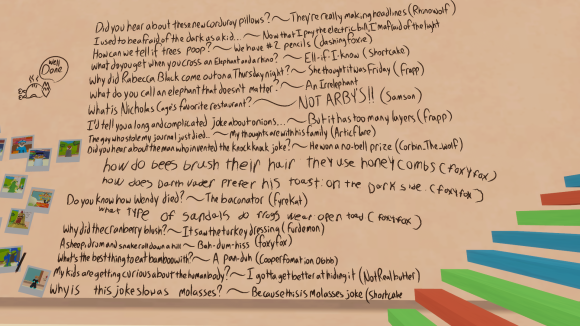 Did you hear about these new corduroy pillows? ~ They're really making headlines (Rhinowolf)
I used to be afraid of the dark as a kid... ~ Now that I pay the electric bill, I'm afraid of the light
How can we tell if trees poop? ~ We have #2 pencils (dashingfoxie)
What do you get when you cross an Elephant and a rhino? ~ Ell-if-I-know (Shortcake)
Why did Rabecca Black come out on a Thursday night? ~ She thought it was Friday (Frapp)
What do you call an elephant that doesn't matter? ~ An Irrelephant
What is Nicholas Cage's favorite restaurant? ~ NOT ARBY'S!! (Samson)
I'd tell you a long and complicated joke about onions... ~ But it has too many layers (Frapp)
The guy who stole my journal just died.. ~ My thoughts are with his family (Articflare)
Did you hear about the man who invented the knock knock joke? ~ He won a no-bell prize (Corbin_The_wolf)
how do bees brush their hair they use honey combs (foxyfox)
how does Darth vader prefer his toast on the Dark side (foxyfox)
Do you know how Wendy died? ~ The baconator (Fyrekat)
what type of sandals do frogs wear open toad (foxyfox)
Why did the cranberry blush? ~ It saw the turkey dressing (Furdemon)
A sheep, drum and snake roll down a hill ~ Bah-dum-hiss (foxyfox)
What's the best thing to eat bamboo with? ~ A pan-duh
My kids are getting curious about the human body? ~ I gotta get better at hiding it (NotRealbutter)
Why is this joke slow as molasses? ~ Because this is Molasses joke (Shortcake
Well Done